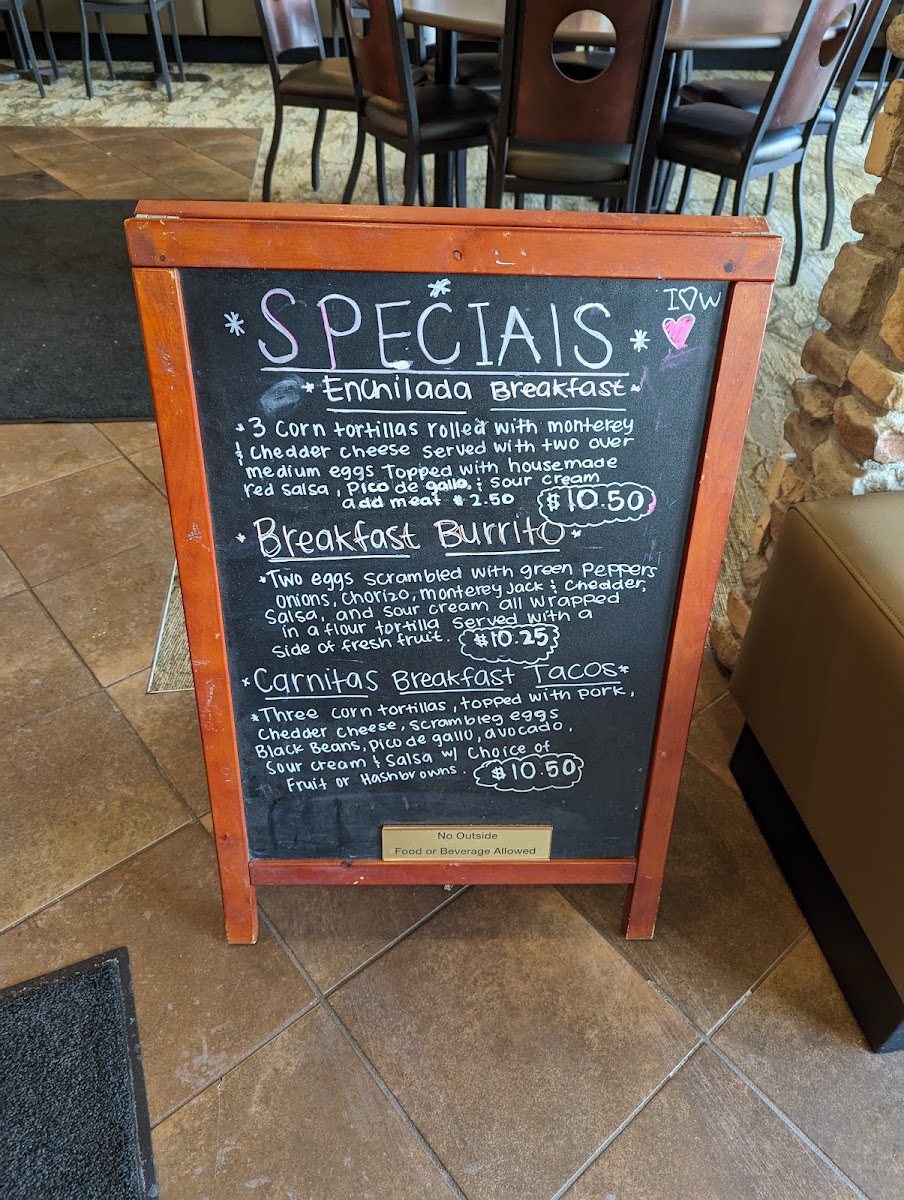 I♡W
* SPECIALS *
* Enchilada Breakfast *
* 3 corn tortillas rolled with monterey
& Chedder cheese served with two over
medium eggs Topped with housemade
red salsa, pico de gallo, & sour cream
add meat $2.50 $10.50
* Breakfast Burrito *
* Two eggs scrambled with green Peppers
onions, chorizo, monterey Jack & Chedder,
salsa, and sour cream all wrapped
in a flour tortilla served with a
side of fresh fruit. $10.25
* Carnitas Breakfast Tacos *
* Three corn tortillas, topped with pork,
chedder cheese, scrambleg eggs
Black Beans, pico de gallo, avocado,
sour cream & salsa w/ choice of
Fruit or Hashbrowns. $10.50
No Outside
Food or Beverage Allowed